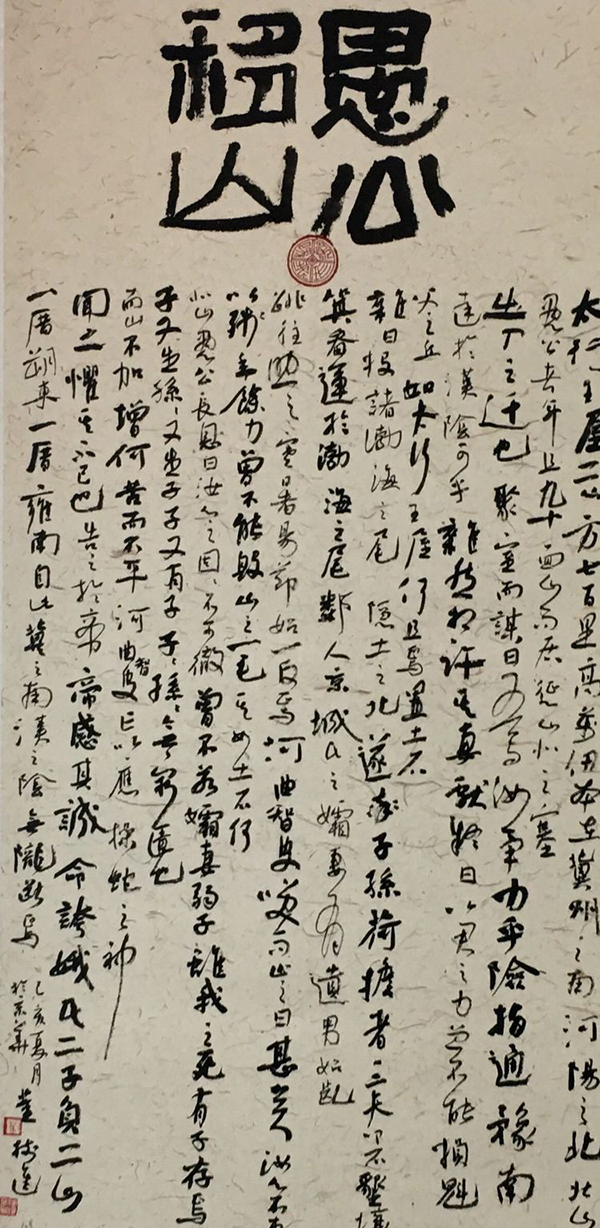 愚公
移山
太行王屋二山方七百里高萬仞本在冀州之南河陽之北北山
愚公者年且九十面山而居懲山北之塞
出入之迂也聚室而謀曰吾與汝畢力平險指通豫南
達於漢陰可乎雜然相許其妻獻疑曰以君之力曾不能損魁
父之丘如太行王屋何且焉置土石
雜曰投諸渤海之尾隱土之北遂率子孫荷擔者三夫叩石墾壤
箕畚運於渤海之尾鄰人京城氏之孀妻有遺男始齔
跳往助之寒暑易節始一反焉河曲智叟笑而止之曰甚矣汝之不
以殘年餘力曾不能毀山之一毛其如土石何
北山愚公長息曰汝心之固、不可徹曾不若孀妻弱子雖我之死有子存焉
子又生孫、又生子子又有子子、孫、無窮匱也
而山不加增何苦而不平河曲智叟亡以應操蛇之神
聞之懼其不已也告之於帝帝感其誠命誇娥氏二子負二山
一厝朔東一厝雍南自此冀之南漢之陰無隴斷焉
己亥夏月
於京華